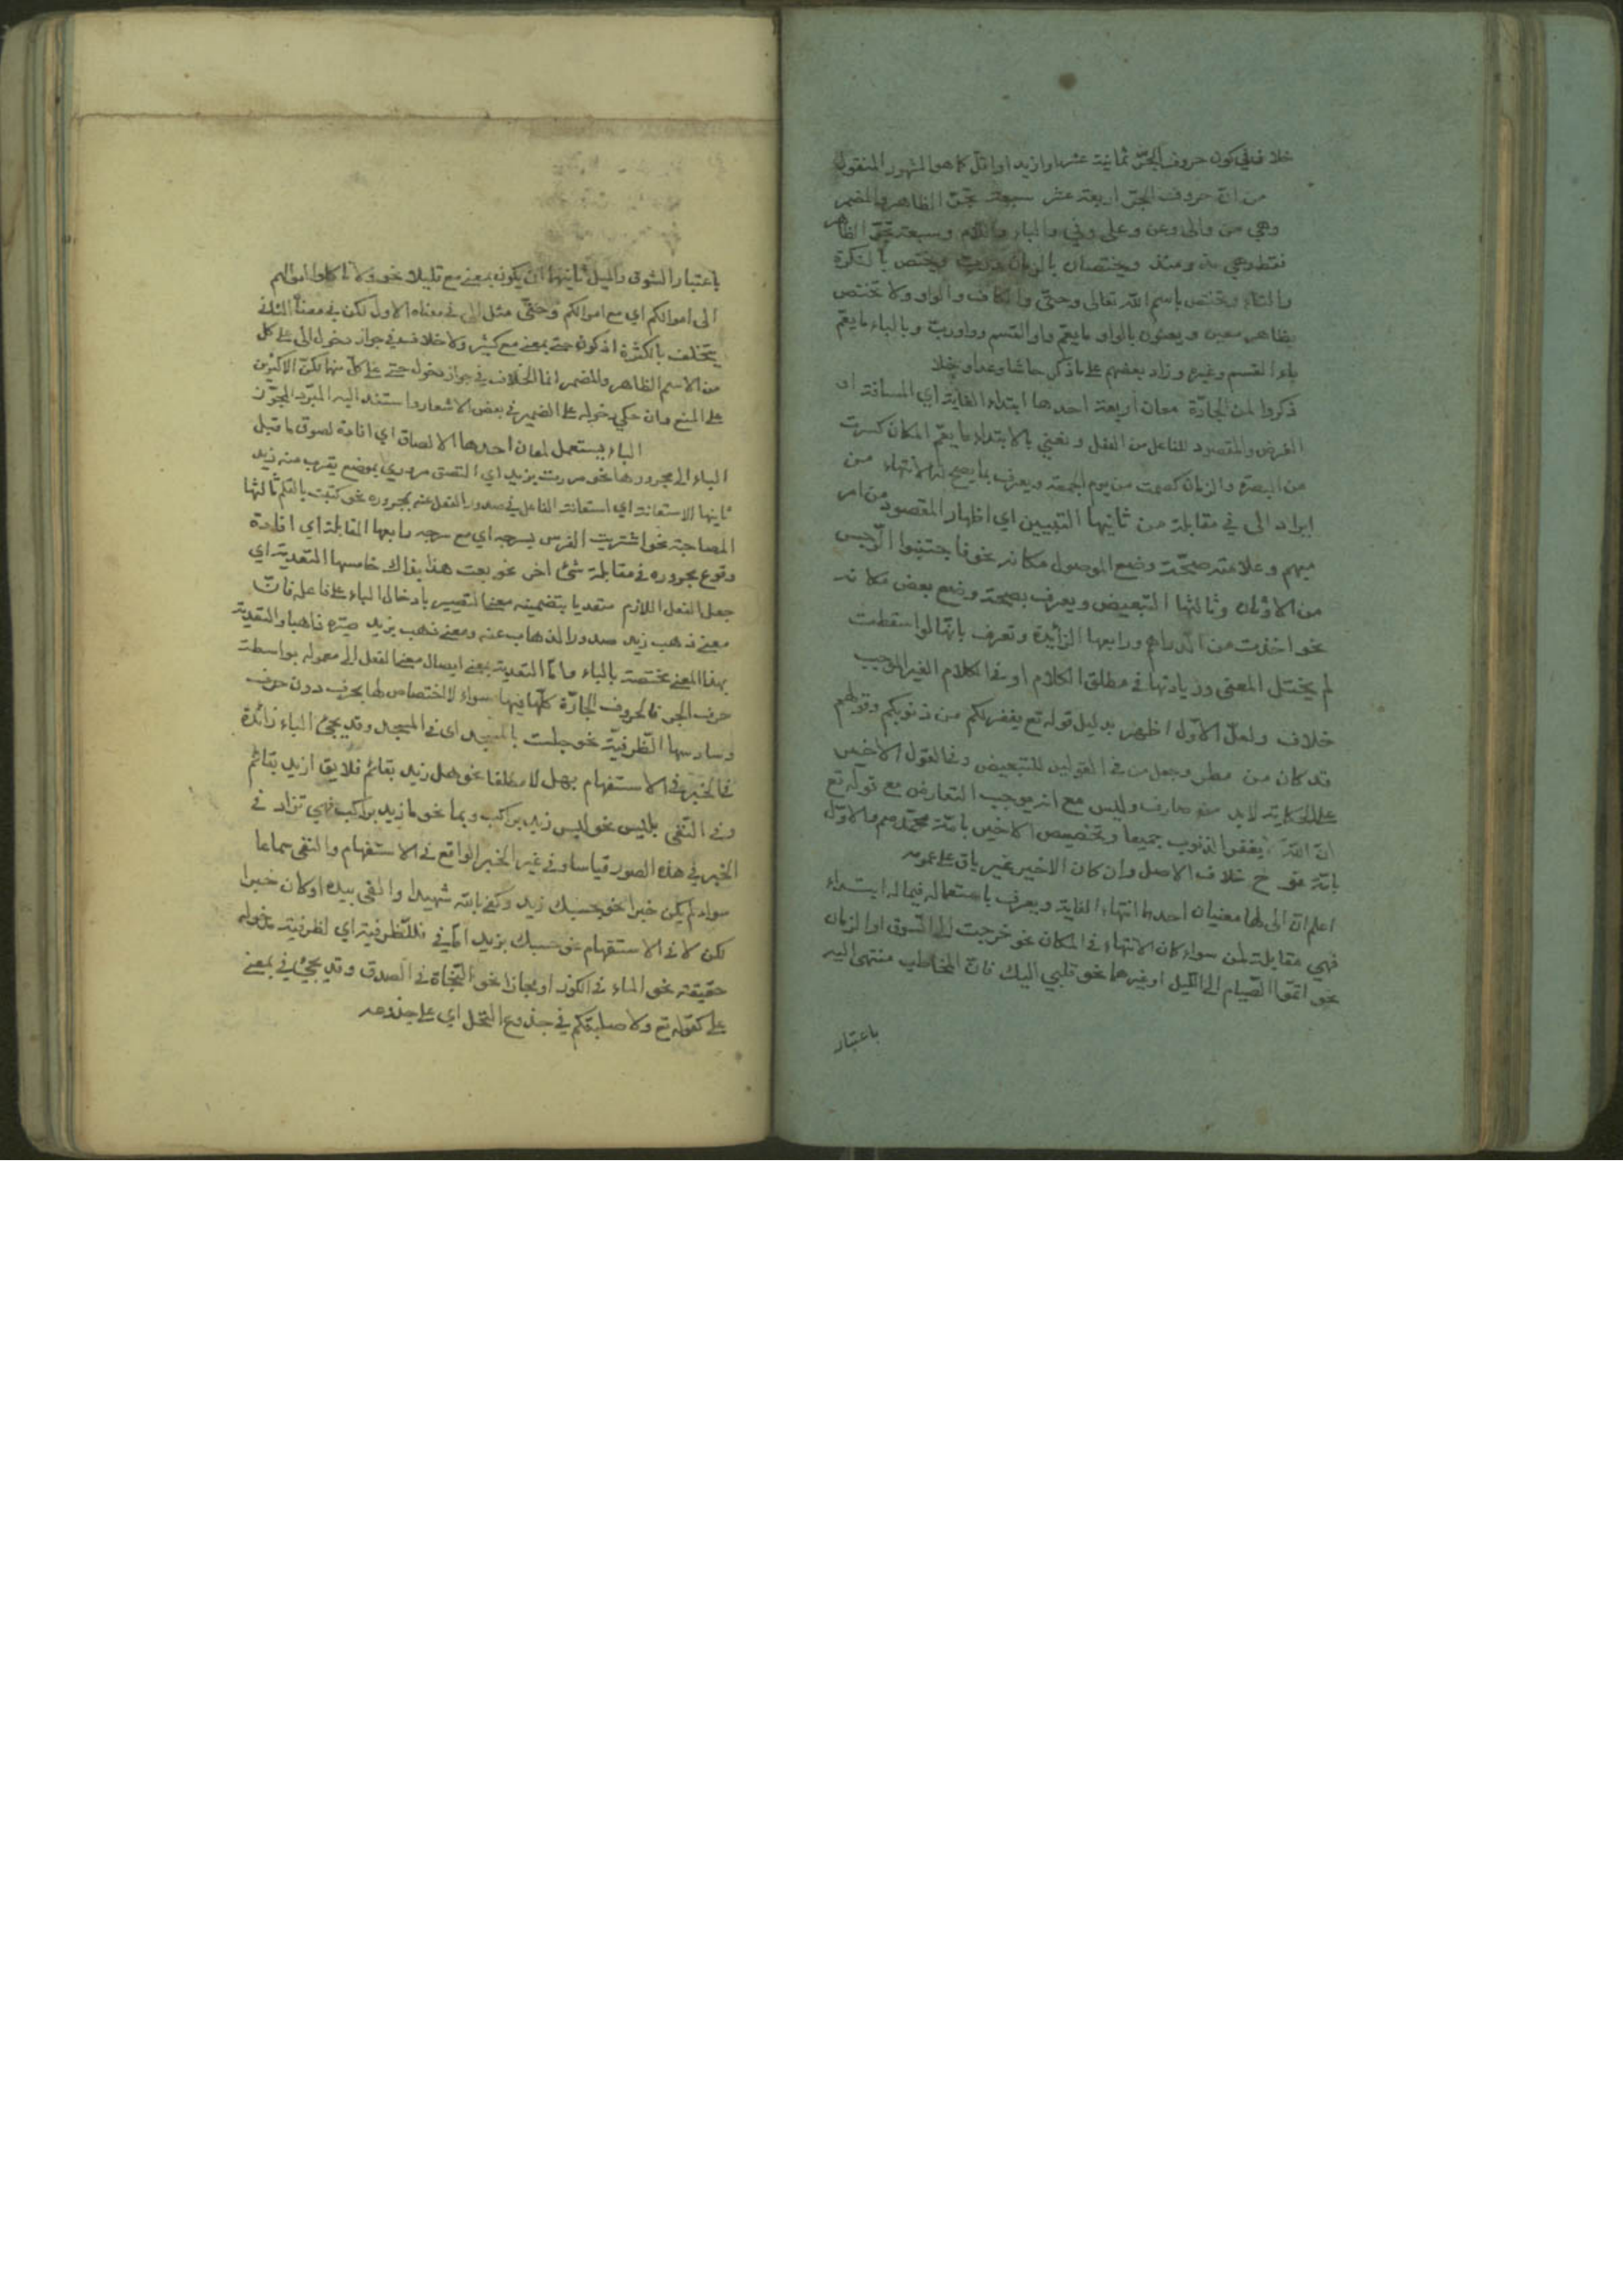 خلاف في كون حروف الجرّ ثمانية عشر او ازيد او اقلّ كما هو المشهور المنقول
من انّ حروف الجرّ اربعة عشر سبعة تجرّ الظاهر والمضمر
وهي من والى وعن وعلى وفي والباء واللام وسبعة تجرّ الظاهر
فقط وهي مذ ومنذ ويختصان بالزمان وربّ ويختص بالنكرة
والتاء وتختص باسم الله تعالى وحتّى والكاف والواو ولا تختص
بظاهر معين ويعنون بالواو ما يعمّ واو القسم وواو ربّ وبالباء ما يعمّ
باء القسم وغيره وزاد بعضهم على ما ذكر حاشا وعدا وخلا
ذكروا لمن الجارّة معان اربعة احدها ابتداء الغاية اي المسافة او
الغرض والمقصود للفاعل من الفعل ونعني بالابتداء ما يعمّ المكان كسرت
من البصرة والزمان كصمت من يوم الجمعة ويعرف بما يصح له الانتهاء من
ايراد الى في مقابلة من ثانيها التبيين اي اظهار المقصود من امر
مبهم وعلامته صحّة وضع الموصول مكانه نحو فاجتنبوا الرّجس
من الاوثان وثالثها التبعيض ويعرف بصحة وضع بعض مكانه
نحو اخذت من الدراهم ورابعها الزائدة وتعرف بانّها لو اسقطت
لم يختل المعنى وزيادتها في مطلق الكلام او في الكلام الغير الموجب
خلاف ولعلّ الاوّل اظهر بدليل قوله تع يغفر لكم من ذنوبكم وقولهم
قد كان من مطر وجعل من في القولين للتبعيض وفي القول الاخير
على الحكاية لابد من صارف وليس مع انه يوجب التعارض مع قوله تع
انّ الله يغفر الذنوب جميعا وتخصيص الاخير بامّة محمّد صم والاوّل
بامّة نوح خلاف الاصل وان كان الاخير غير باق على عمومه
اعلم انّ الى لها معنيان احدها انتهاء الغاية ويعرف باستعماله فيما له ابتداء
فهي مقابلة لمن سواء كان الانتهاء في المكان نحو خرجت الى السّوق او الزمان
نحو اتمّوا الصّيام الى الليل او غيرهما نحو قلبي اليك فانّ المخاطب منتهى اليه
باعتبار
باعتبار الشوق والميل ثانيها ان يكون بمعنى مع قليلا نحو ولا تاكلوا اموالهم
الى اموالكم اي مع اموالكم وحتّى مثل الى في معناه الاول لكن في معناه الثاني
يتخلف بالكثرة اذ كون حتى بمعنى مع كثير ولا خلاف في جواز دخول الى على كل
من الاسم الظاهر والمضمر انما الخلاف في جواز دخول حتى على كلّ منهما لكنّ الاكثرين
على المنع وان حكي دخوله على الضمير في بعض الاشعار واستند اليه المبرّد المجوّز
الباء يستعمل لمعان احدها الالصاق اي افادة لصوق ما قبل
الباء الى مجرورها نحو مررت بزيد اي التصق مروري بموضع يقرب منه زيد
ثانيها الاستعانة اي استعانة الفاعل في صدور الفعل عنه بمجروره نحو كتبت بالقلم ثالثها
المصاحبة نحو اشتريت الفرس بسرجه اي مع سرجه رابعها المقابلة اي افادة
وقوع مجروره في مقابلة شئ اخر نحو بعت هذا بذاك خامسها التعدية اي
جعل الفعل اللازم متعديا بتضمينه معنى التصيير بادخال الباء على فاعله فانّ
معنى ذهب زيد صدور الذهاب عنه ومعنى ذهب بزيد صيّره ذاهبا والتعدية
بهذا المعنى مختصة بالباء وامّا التعدية بمعنى ايصال معنى الفعل الى معموله بواسطة
حرف الجر فالحروف الجارّة كلّها فيها سواء لا اختصاص لها بحرف دون حرف
وسادسها الظرفيّة نحو جلست بالمسجد اي في المسجد وقد يجئ الباء زائدة
في الخبر في الاستفهام بهل لا مطلقا نحو هل زيد بقائم فلا يق ازيد بقائم
وفي النفى بليس نحو ليس زيد براكب وبما نحو ما زيد براكب فهي تزاد في
الخبر في هذه الصور قياسا وفي غير الخبر الواقع في الاستفهام والنفى سماعا
سواء لم يكن خبرا نحو بحسبك زيد وكفى بالله شهيدا والقى بيده او كان خبرا
لكن لا في الاستفهام نحو حسبك بزيد امّا في فللظرفية اي لظرفية مدخوله
حقيقة نحو الماء في الكوز او مجازا نحو النّجاة في الصدق وقد يجئ في بمعنى
على كقوله تع ولاصلبنّكم في جذوع النخل اي على جذوعه